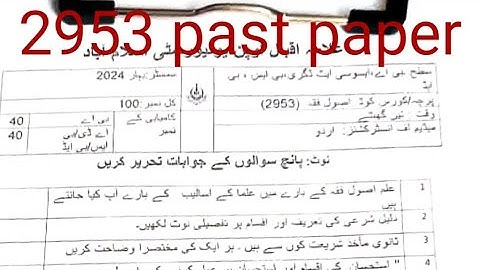 2953 past paper
علامہ اقبال اوپن یونیورسٹی اسلام آباد
سطح: بی اے، ایسوسی ایٹ ڈگری، بی ایس، بی ایڈ
سمسٹر: بہار 2024
پرچہ/کورس کوڈ: اصول فقہ (2953)
کل نمبر: 100
وقت: تین گھنٹے
کامیابی کے نمبر
بی اے 40
اے ڈی/بی ایس/بی ایڈ 40
میڈیم آف انسٹرکشنز: اردو
نوٹ: پانچ سوالوں کے جوابات تحریر کریں
1 علم اصول فقہ کے بارے میں علما کے اسالیب کے بارے آپ کیا جانتے ہیں
2 دلیل شرعی کی تعریف اور اقسام پر تفصیلی نوٹ لکھیں۔
3 ثانوی مآخذ شریعت کون سے ہیں۔ ہر ایک کی مختصرا وضاحت کریں
4 "استحسان کی اقسام اور استحسان